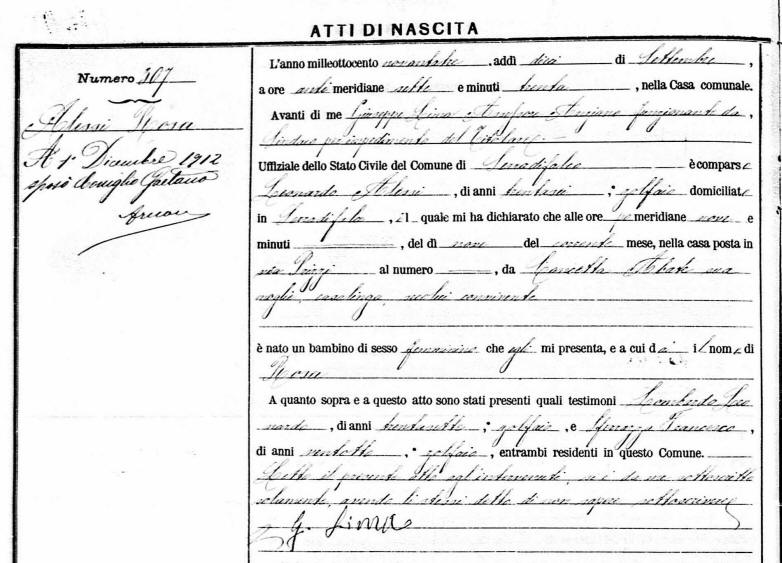 ATTI DI NASCITA
Numero 307
Alessi Rosa
A 1° Dicembre 1912
sposò Gaetano
L'anno milleottocento novantatre, addì dieci di Settembre,
a ore anti meridiane sette e minuti trenta, nella Casa comunale.
Avanti di me Giuseppe Lima Assessore Anziano funzionante da,
Sindaco per impedimento del Titolare
Uffiziale dello Stato Civile del Comune di Serradifalco è comparso
Leonardo Alessi, di anni trentasei; zolfaio domiciliato
in Serradifalco, il quale mi ha dichiarato che alle ore pomeridiane nove e
minuti, del dì nove del corrente mese, nella casa posta in
via Prizzi al numero, da Concetta Abate sua
moglie, casalinga, seco lui convivente
è nato un bambino di sesso femminino che egli mi presenta, e a cui dà il nome di
Rosa
A quanto sopra e a questo atto sono stati presenti quali testimoni Lombardo Leo
nardo, di anni trentasette; zolfaio, e Sferrazza Francesco,
di anni ventotto; zolfaio, entrambi residenti in questo Comune.
Letto il presente atto agl'intervenuti, si è da me sottoscritto
solamente, avendo li stessi detto di non sapere sottoscrivere
G. Lima